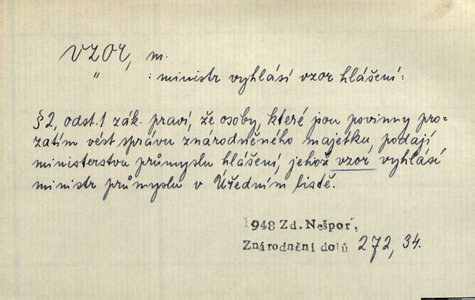 VZOR, m.
" : ministr vyhlásí vzor hlášení:
§ 2, odst. 1 zák. praví, že osoby, které jsou povinny pro-
zatím vést správu znárodněného majetku, podají
ministerstvu průmyslu hlášení, jehož vzor vyhlásí
ministr průmyslu v Úředním listě.
1948 Zd. Nešpor,
Znárodnění dolů 272, 34.